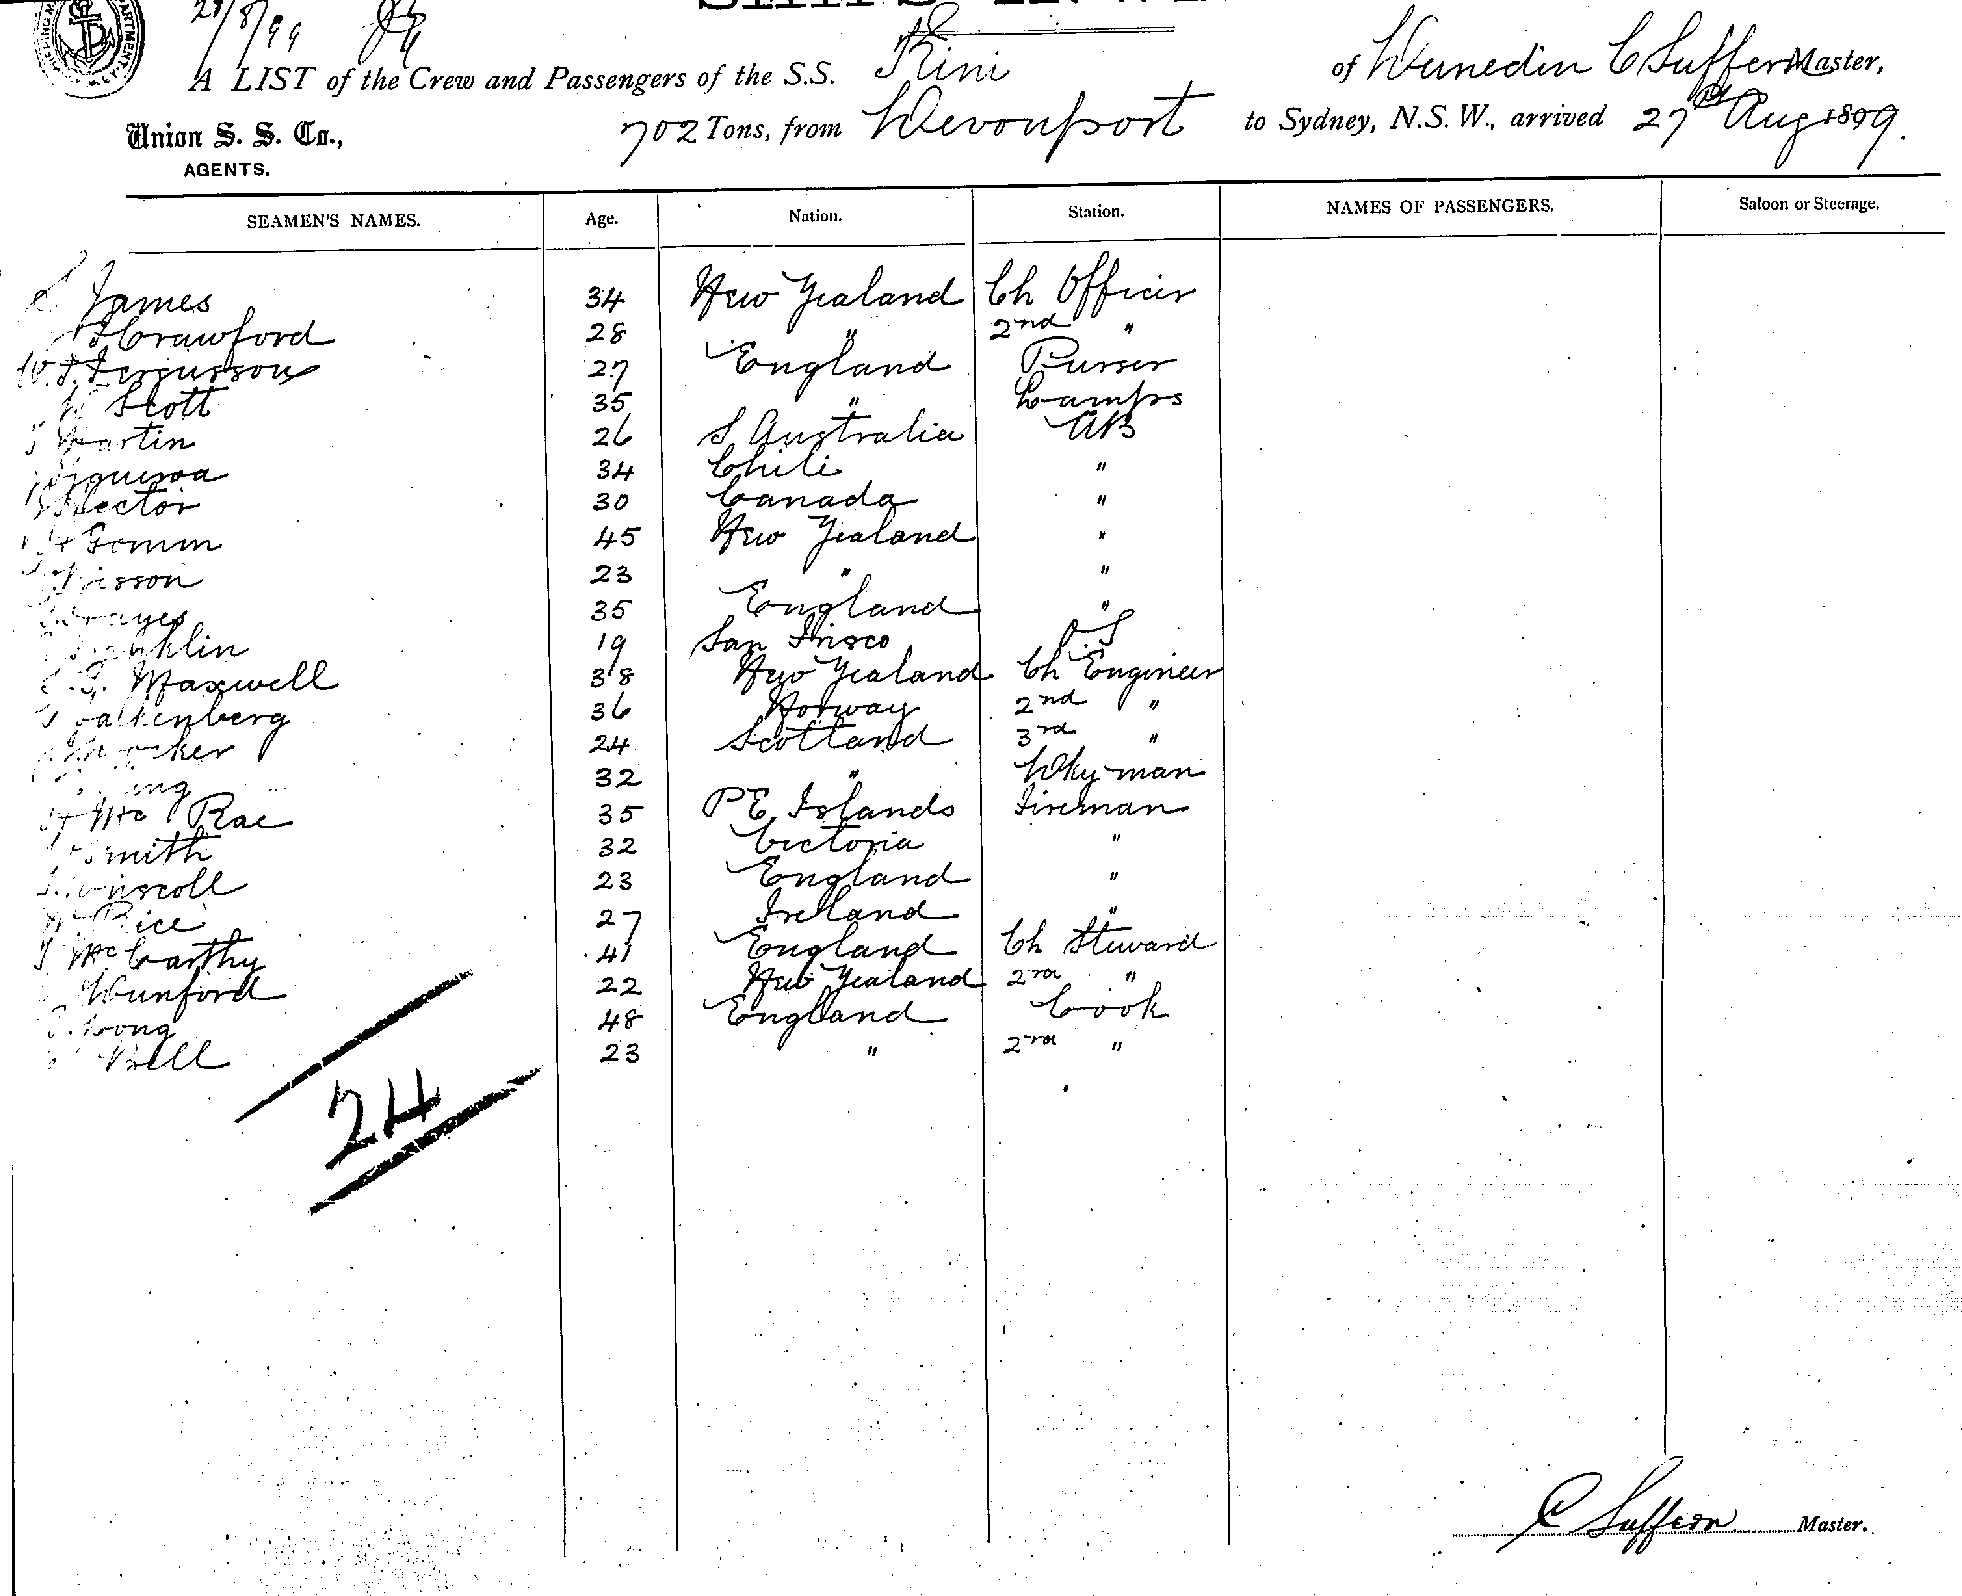 28/8/99
A LIST of the Crew and Passengers of the S.S. Rini of Dunedin C Suffern Master,
Union S. S. Co.,
AGENTS.
702 Tons, from Devonport to Sydney, N.S.W., arrived 27th Aug 1899.
SEAMEN'S NAMES. Age. Nation. Station. NAMES OF PASSENGERS. Saloon or Steerage.
James 34 New Zealand Ch Officer
Crawford 28 " 2nd "
W. J. Fergusson 27 England Purser
W Scott 35 " Lamps
Martin 26 S Australia AB
Figueroa 34 Chili "
Hector 30 Canada "
Gomm 45 New Zealand "
Nisson 23 " "
35 England "
19 San Frisco O.S
G. Maxwell 38 New Zealand Ch Engineer
Falkenberg 36 Norway 2nd "
24 Scotland 3rd "
32 " Dkyman
Mc Rae 35 P E Islands Fireman
Smith 32 Victoria "
Driscoll 23 England "
Rice 27 Ireland "
McCarthy 41 England Ch Steward
Dunford 22 New Zealand 2nd "
Long 48 England Cook
Bell 23 " 2nd "
24
C Suffern Master.